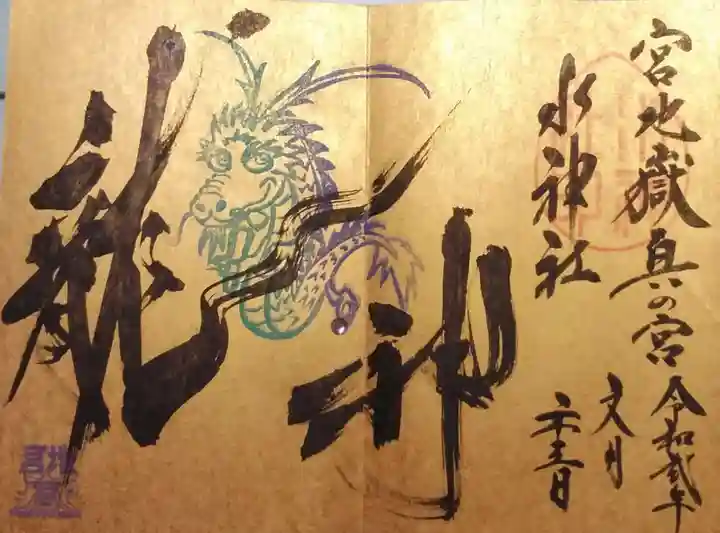 宮地嶽奥の宮
水神社
令和弐年
文月
二十三日
龍神